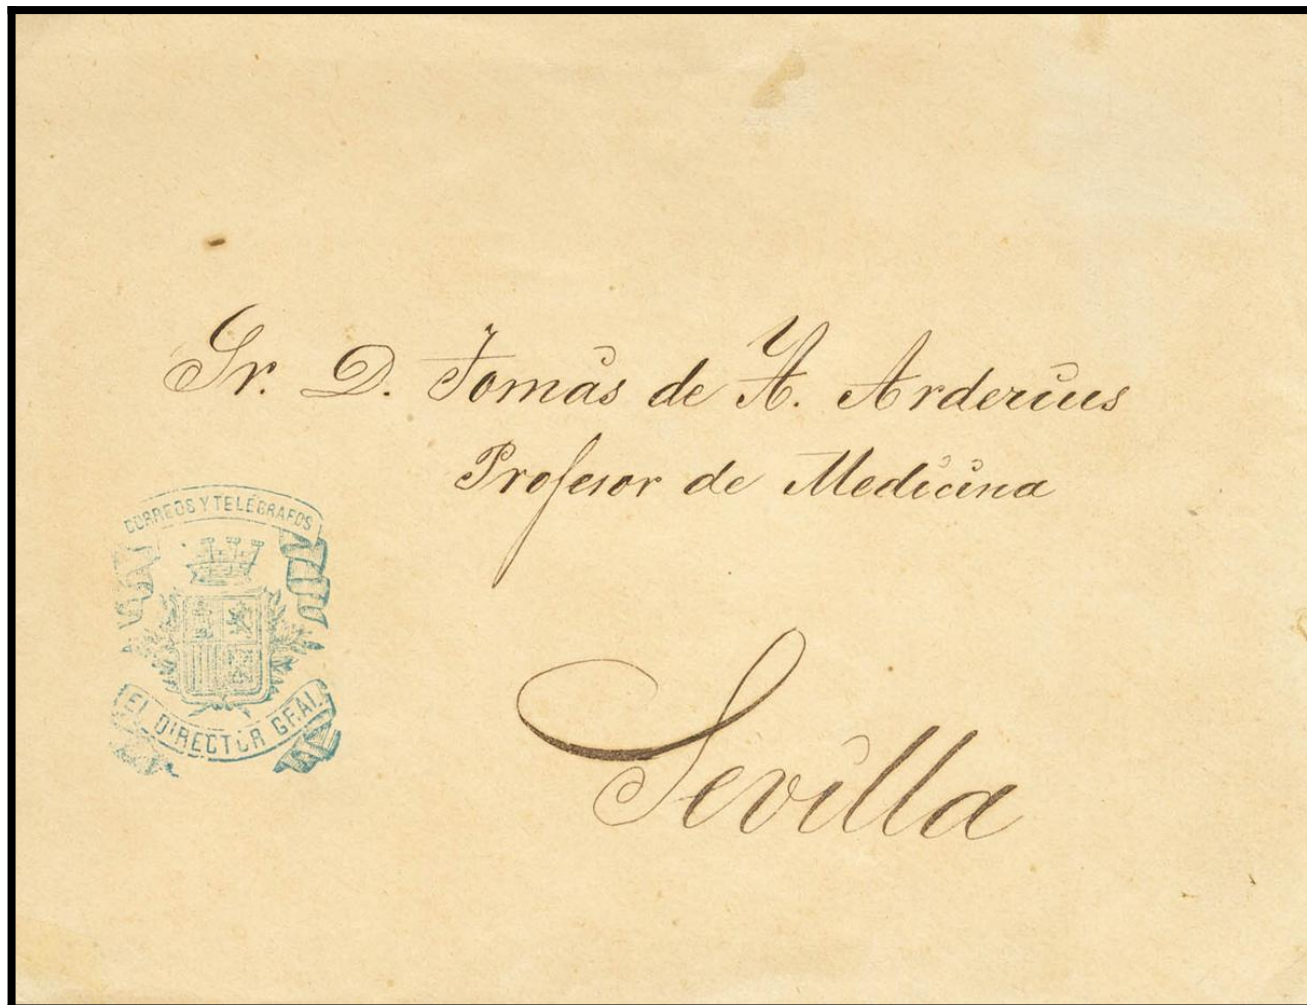 Sr. D. Tomás de A. Arderius
Profesor de Medicina
CORREOS Y TELÉGRAFOS
EL DIRECTOR GRAL.
Sevilla